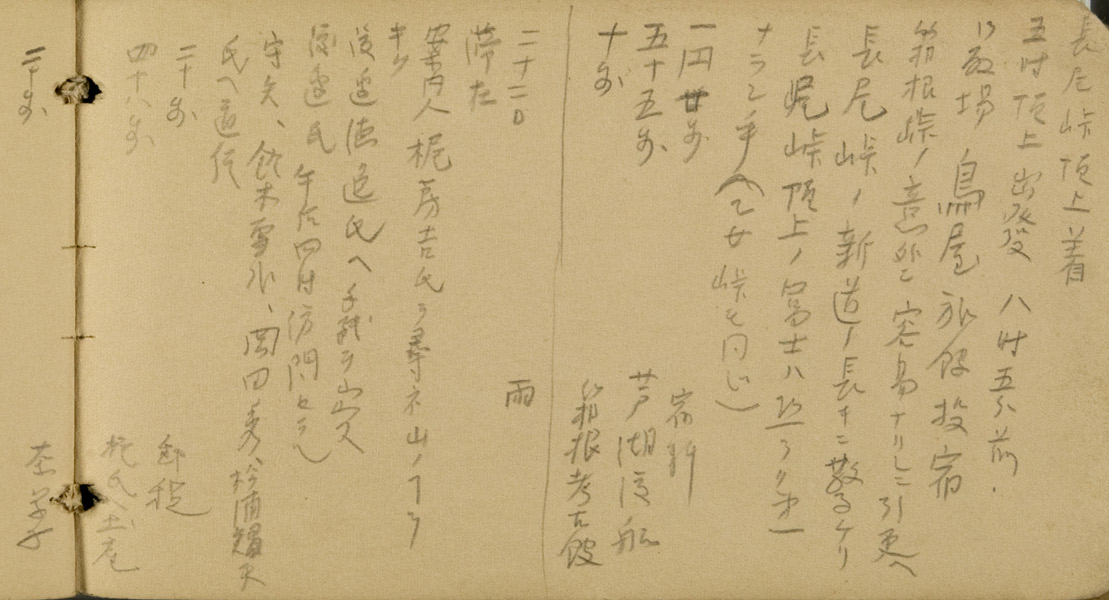 長尾峠頂上着
五時頂上出發 八時五分前
御殿場 鳥屋旅館投宿
箱根峠ノ意外ニ容易ナリシニ引更ヘ
長尾峠ノ新道ノ長キニ驚ろケリ
長尾峠頂上ノ富士ハ恐ラク才一
ナランキ(乙女峠も同じ)
一円廿銭 宿料
五十五銭 芦湖渡船
十銭 箱根考古館
二十二日 雨
滞在
案内人梶房吉氏ヲ尋ネ山ノヿヲ
キク
渡邊德逸氏ヘ手紙ヲ出ス
渡邊氏午后四時訪問セラル
守矢、鈴木、岡田
氏ヘ通信
二十銭 郵税
四十八銭 梶氏ヘ土産
二十銭 茶菓子